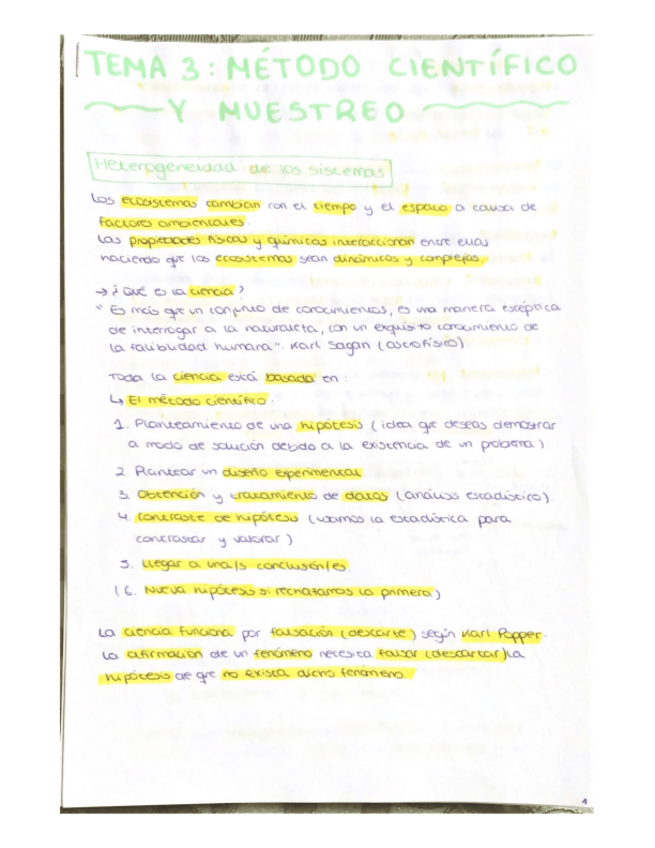 TEMA 3: MÉTODO CIENTÍFICO
Y MUESTREO
Heterogeneidad de los sistemas
Los ecosistemas cambian con el tiempo y el espacio a causa de
factores ambientales.
Las propiedades físicas y químicas interaccionan entre ellas
haciendo que los ecosistemas sean dinámicos y complejos.
→ ¿Qué es la ciencia?
" Es más que un conjunto de conocimientos, es una manera escéptica
de interrogar a la naturaleza, con un exquisito conocimiento de
la falibilidad humana". Karl Sagan (astrofísico)
Toda la ciencia está basada en:
↳ El método científico.
1. Planteamiento de una hipótesis (idea que deseas demostrar
a modo de solución debido a la existencia de un problema)
2 Plantear un diseño experimental
3. Obtención y tratamiento de datos (análisis estadístico)
4. Contraste de hipótesis (usamos la estadística para
contrastar y valorar)
5. Llegar a una/s conclusión/es.
(6. Nueva hipótesis si rechazamos la primera)
La ciencia funciona por falsación (descarte) según Karl Popper.
La afirmación de un fenómeno necesita falsar (descartar) la
hipótesis de que no exista dicho fenómeno.
1